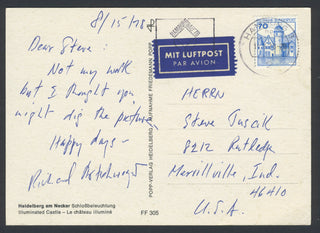 8/15/78
Dear Steve:
Not my work
but I thought you
might dig the picture.
Happy days—
Richard
Heidelberg am Neckar Schloßbeleuchtung
Illuminated Castle – Le château illuminé
FF 305
POPP-VERLAG HEIDELBERG, AUFNAHME FRIEDEMANN POPP
MIT LUFTPOST
PAR AVION
70
HERRN
Steve
8212 Rutledge
Merrillville, Ind.
46410
U.S.A.